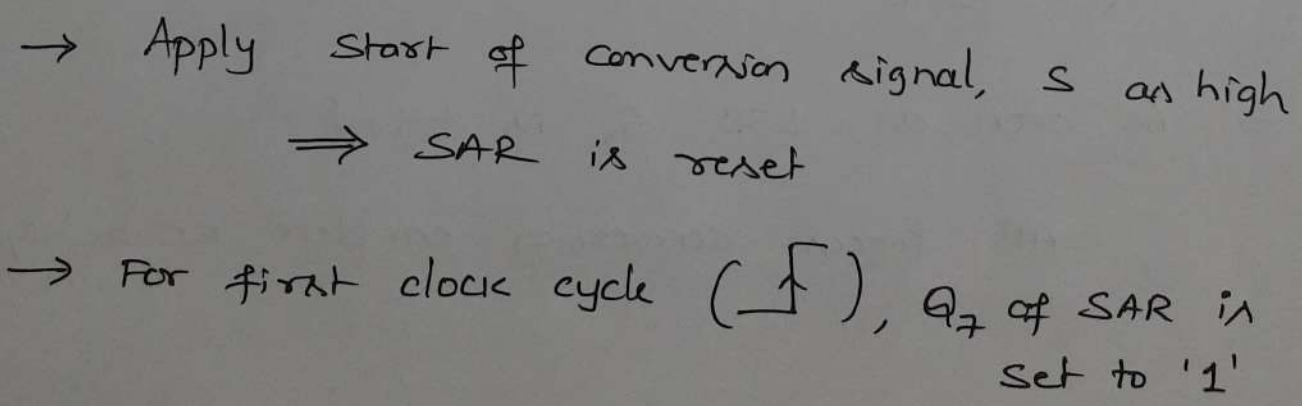 → Apply start of conversion signal, S as high
⇒ SAR is reset
→ For first clock cycle (⎍), Q₇ of SAR is
set to '1'